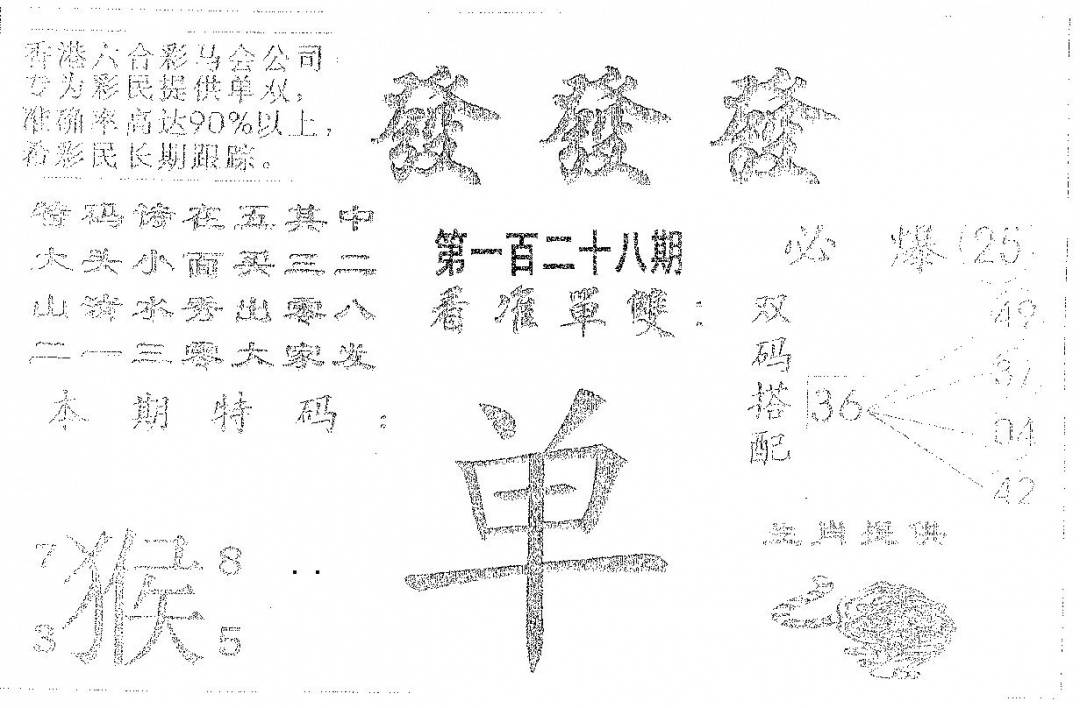 香港六合彩马会公司
专为彩民提供单双，
准确率高达90%以上，
希彩民长期跟踪。
發 發 發
特码请在五其中
大头小面买三二
山清水秀出零八
二一三零大家发
本期特码：
第一百二十八期
看准單雙：
单
必爆(25)
双码搭配
36
49
37
04
42
生肖提供
7 猴 8
3 5